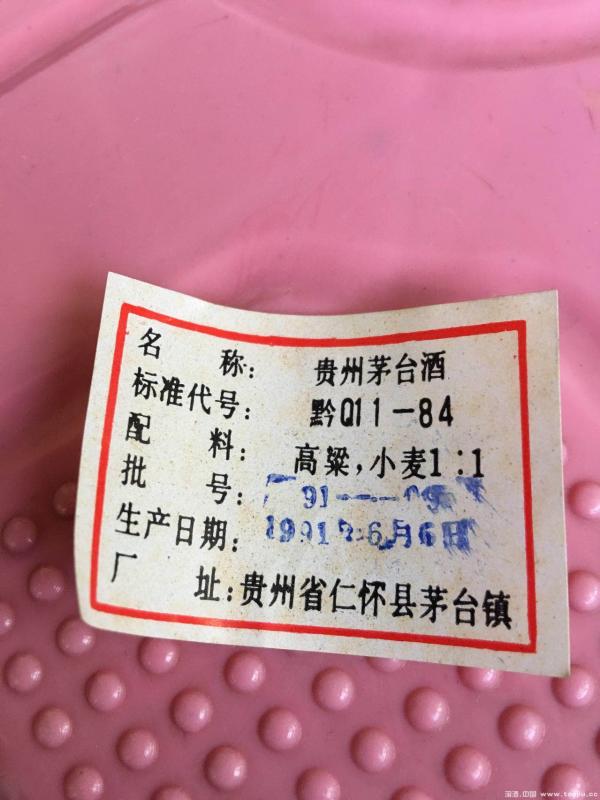 名 称: 贵州茅台酒
标准代号: 黔Q11-84
配 料: 高粱,小麦1:1
批 号: 91-
生产日期: 1991年6月6日
厂 址: 贵州省仁怀县茅台镇